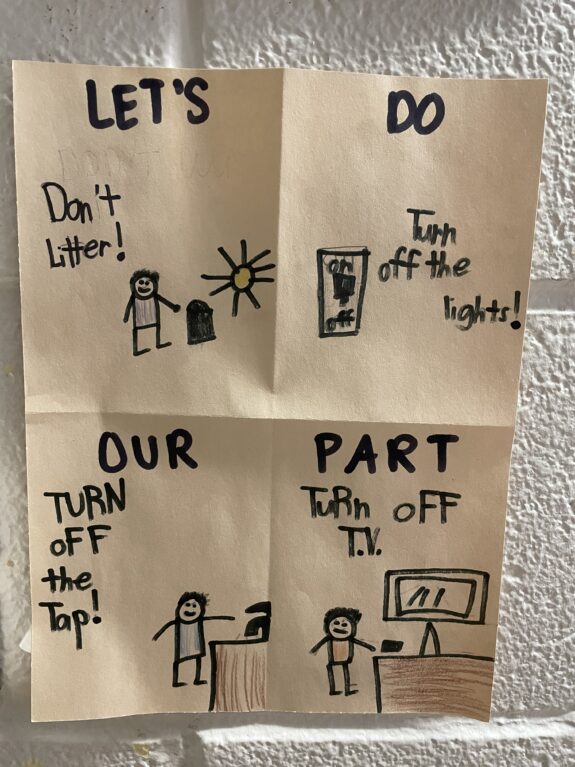 LET'S
Don't
Litter!
DO
on
off
Turn
off the
lights!
OUR
TURN
OFF
the
Tap!
PART
TuRn OFF
T.V.